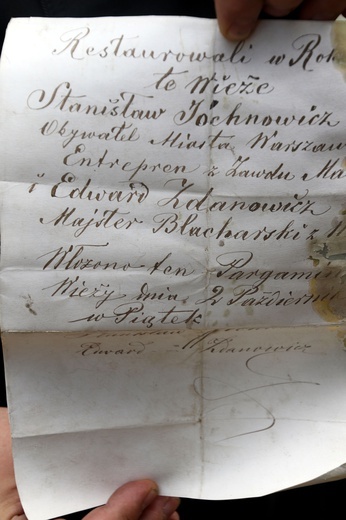 Restaurowali w Rok
te Wieże
Stanisław Jóchnowicz
Obywatel Miasta Warszaw
Entrepren z Zawdu Ma
i Edward Zdanowicz
Majster Blacharski z W
Włożono ten Pargamin
Wieży dnia 2 Pazdzierni
w Piątek
Edward Zdanowicz